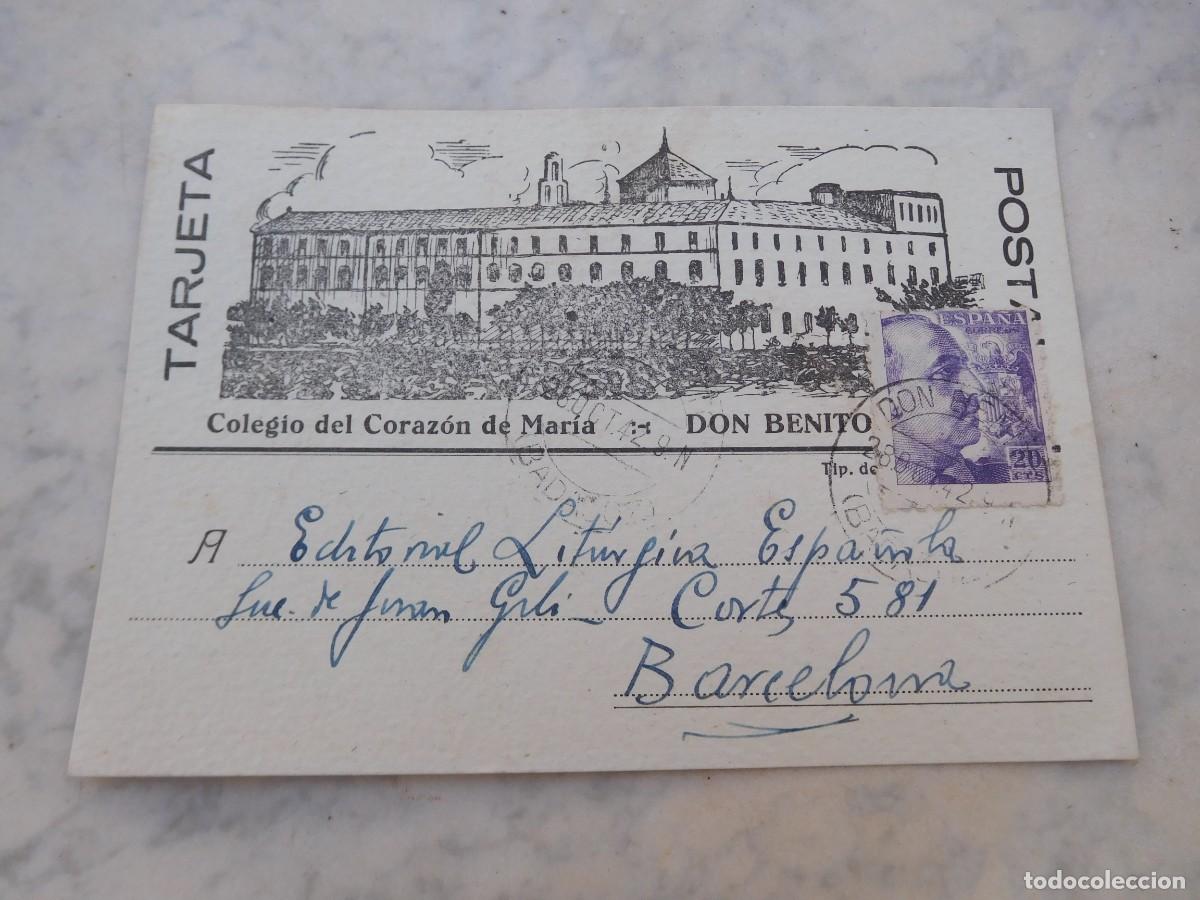 TARJETA
POSTA
ESPAÑA
CORREOS
20
CTS
Colegio del Corazón de María :-: DON BENITO
Tip. de
DON
28 OCT.42 9.N
(BAD
28 OCT.42
(BA
A Editorial Litúrgica Española
Suc. de Juan Gili - Cortes 581
Barcelona
todocoleccion